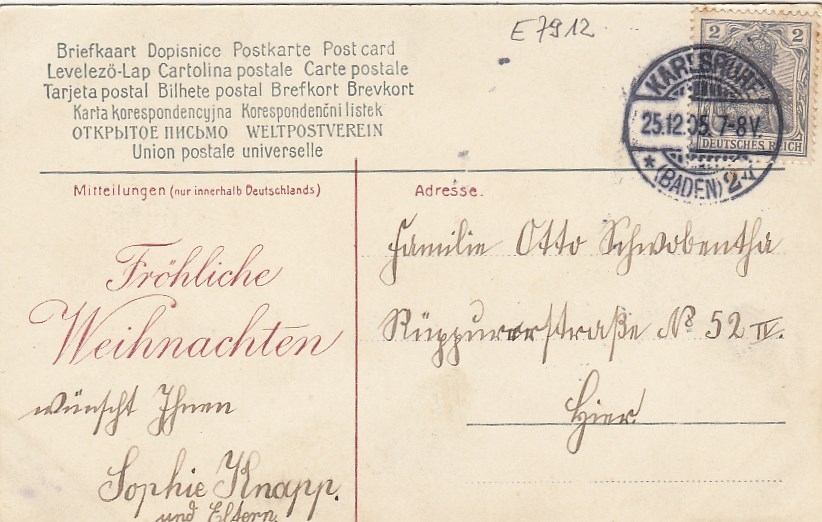 E7912
Briefkaart Dopisnice Postkarte Post card
Levelező-Lap Cartolina postale Carte postale
Tarjeta postal Bilhete postal Brefkort Brevkort
Karta korespondencyjna Korespondenční listek
ОТКРЫТОЕ ПИСЬМО WELTPOSTVEREIN
Union postale universelle
2 2
DEUTSCHES REICH
KARLSRUHE
25.12.05. 7-8V.
* (BADEN) 2
Mitteilungen (nur innerhalb Deutschlands)
Fröhliche
Weihnachten
wünscht Ihnen
Sophie Knapp.
und Eltern.
Adresse.
Familie Otto Schwobentha
Rüppurrerstraße No 52 IV.
Hier.